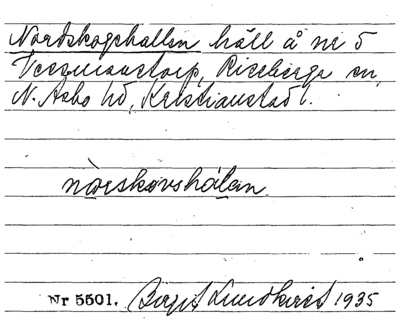 Nordskogshallen häll å nr 5
Vesmanstorp, Riseberga sn,
N. Åsbo hd, Kristianstad l.
nòrskovshálan
Nr 5501. Birgit Lundkvist 1935